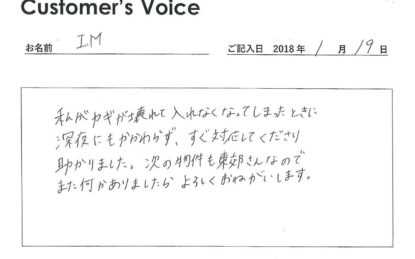 Customer's Voice
お名前 I.M ご記入日 2018年 1月 19日
私がカギが壊れて入れなくなってしまったときに
深夜にもかかわらず、すぐ対応してくださり
助かりました。次の物件も東郊さんなので
また何かありましたら よろしくおねがいします。